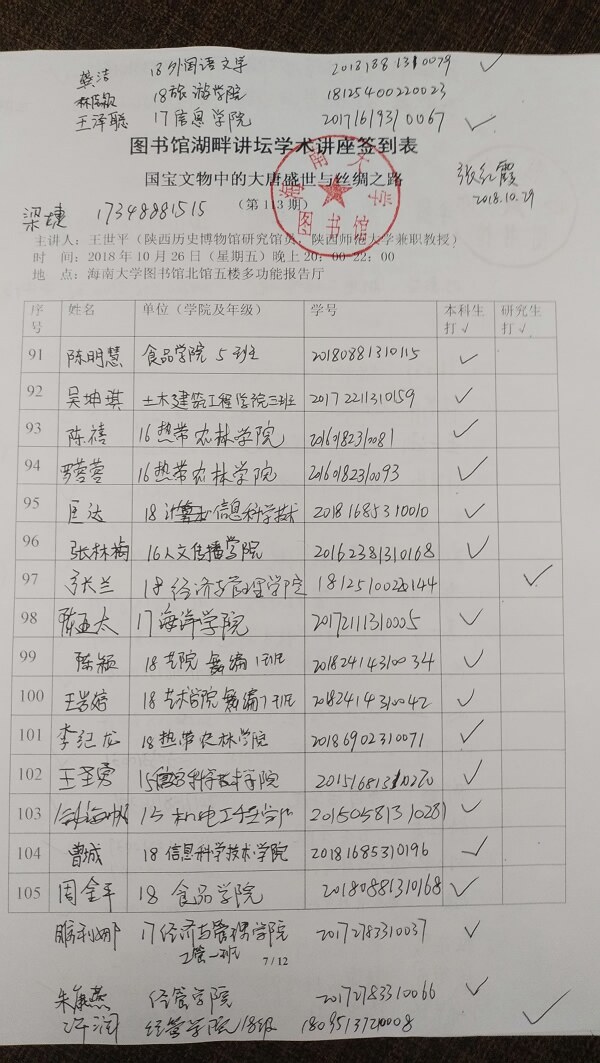 18外国语文学 20181881310079 ✓
18旅游学院 18125400220023
王泽聪 17信息学院 20171619310067 ✓
图书馆湖畔讲坛学术讲座签到表
国宝文物中的大唐盛世与丝绸之路
(第113期)
海南大学
图书馆
张红霞
2018.10.29
梁捷 17348881515
主讲人:王世平(陕西历史博物馆研究馆员,陕西师范大学兼职教授)
时 间:2018年10月26日(星期五)晚上20:00-22:00
地 点:海南大学图书馆北馆五楼多功能报告厅
序号 姓名 单位(学院及年级) 学号 本科生打√ 研究生打√
91 陈明慧 食品学院5班 20180881310115 ✓
92 吴坤琪 土木建筑工程学院三班 20172211310159 ✓
93 陈禧 16热带农林学院 20160182310081 ✓
94 罗蓉蓉 16热带农林学院 20160182310093 ✓
95 匡达 18 信息科学技术 20181685310010 ✓
96 张林梅 16人文传播学院 20162381310168 ✓
97 张兰 18经济与管理学院 18125100220144 ✓
98 陈亚太 17海洋学院 20172111310005 ✓
99 陈颖 18艺院舞编1班 20182414310034 ✓
100 18艺术学院舞编1班 20182414310042 ✓
101 李纪龙 18热带农林学院 20186902310071 ✓
102 王圣勇 15信息科学技术学院 ✓
103 15机电工程学院 20150581310281 ✓
104 曾城 18信息科学技术学院 20181685310196 ✓
105 周金平 18食品学院 20180881310168 ✓
17经济与管理学院 20172783310037 ✓
工管一班
7/12
朱康燕 经管学院 20172783310066 ✓
许润 经管学院18级 18095137210008 ✓